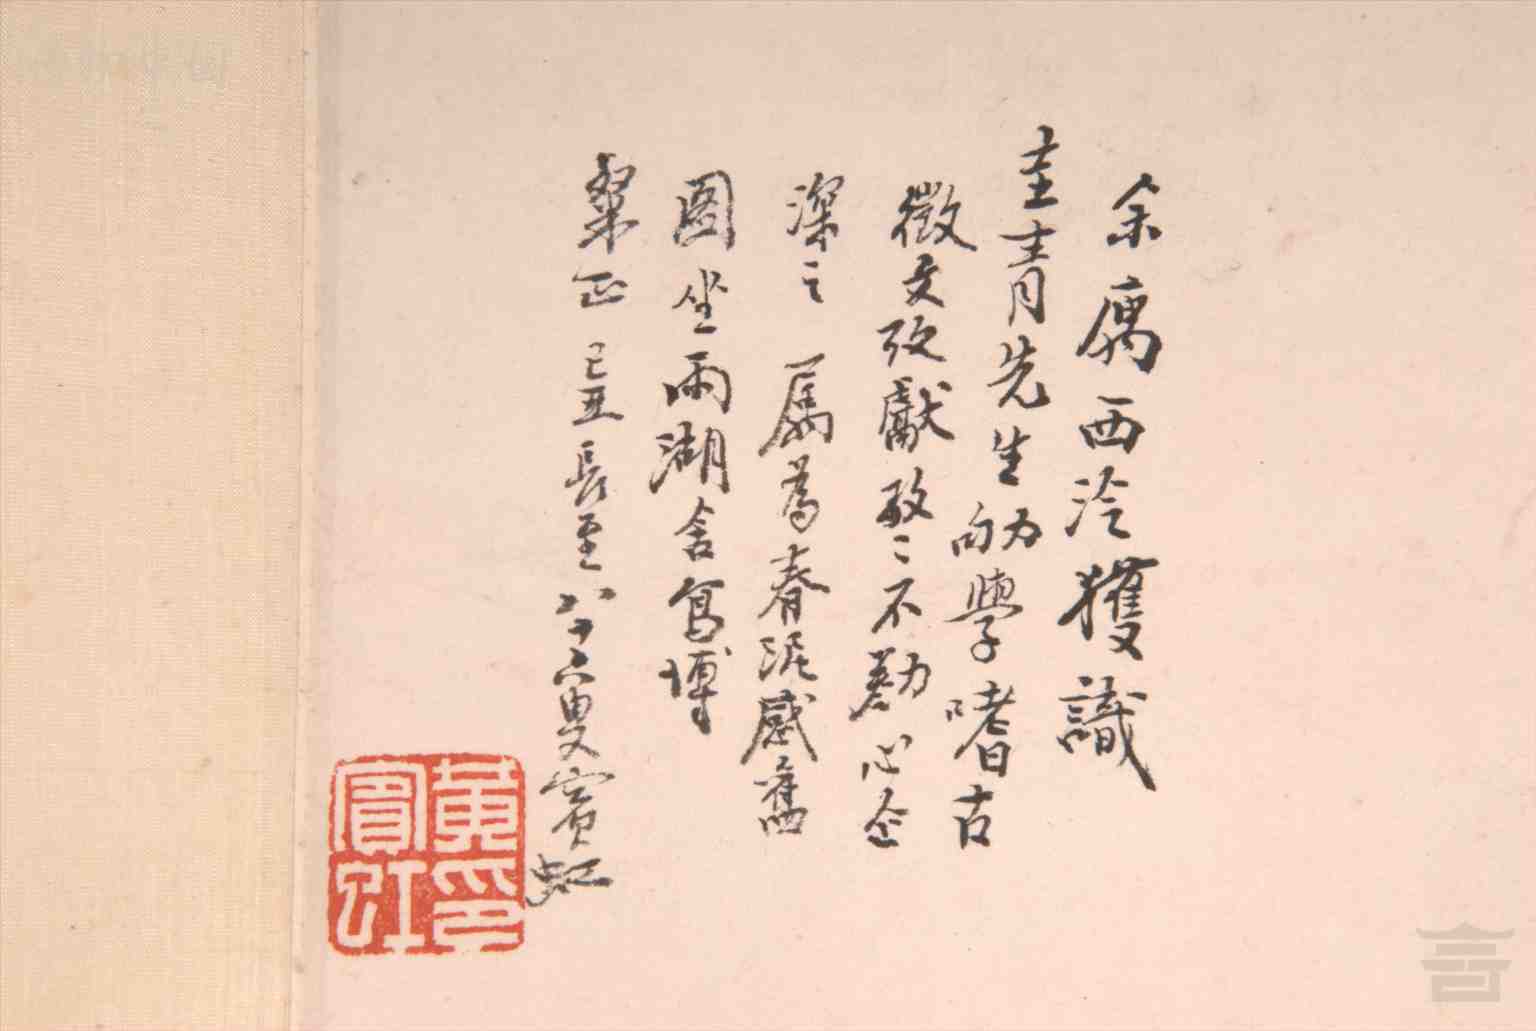 余寓西泠獲識
圭青先生劬學嗜古
徵文攷獻孜〻不勌心企
深之 屬為春泥感舊
圖坐雨湖舍寫博
粲正 己丑長至八十六叟賓虹
黃賓虹印